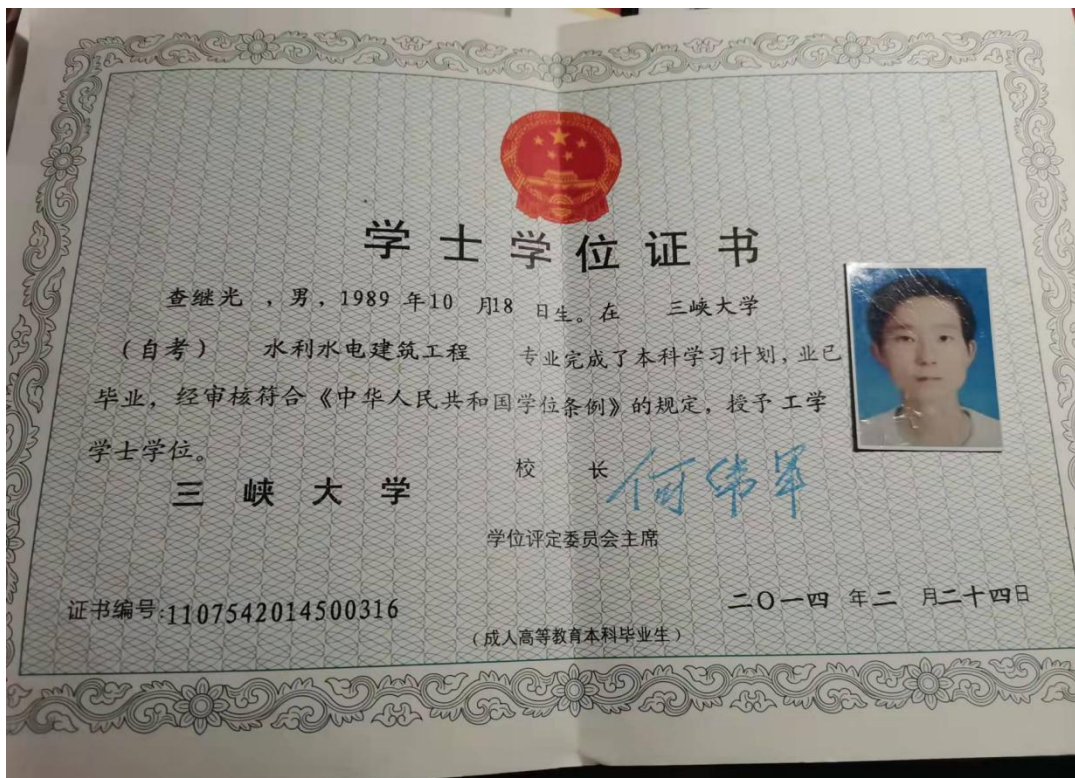 学士学位证书
查继光 ，男，1989 年10 月18 日生。在 三峡大学
（自考） 水利水电建筑工程 专业完成了本科学习计划，业已
毕业，经审核符合《中华人民共和国学位条例》的规定，授予 工学
学士学位。
三峡大学
校 长 何伟军
学位评定委员会主席
证书编号:1107542014500316
二〇一四 年二 月二十四日
（成人高等教育本科毕业生）